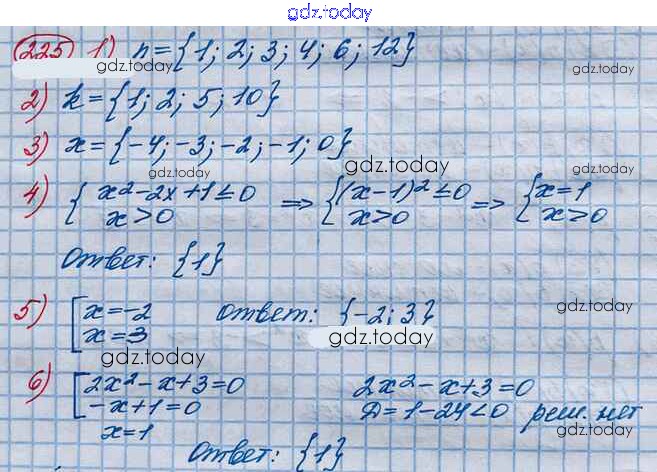 gdz.today
225 1) n={1; 2; 3; 4; 6; 12}
gdz.today gdz.today
2) k={1; 2; 5; 10}
3) x={-4; -3; -2; -1; 0}
gdz.today gdz.today gdz.today
4) { x²-2x+1≤0 => { (x-1)²≤0 => { x=1
x>0 x>0 x>0
gdz.today gdz.today
Ответ: {1}
5) [ x=-2 Ответ: {-2; 3}
x=3
gdz.today gdz.today gdz.today
6) [ 2x²-x+3=0 2x²-x+3=0
-x+1=0 D=1-24<0 реш. нет
x=1
gdz.today
Ответ: {1}
gdz.today